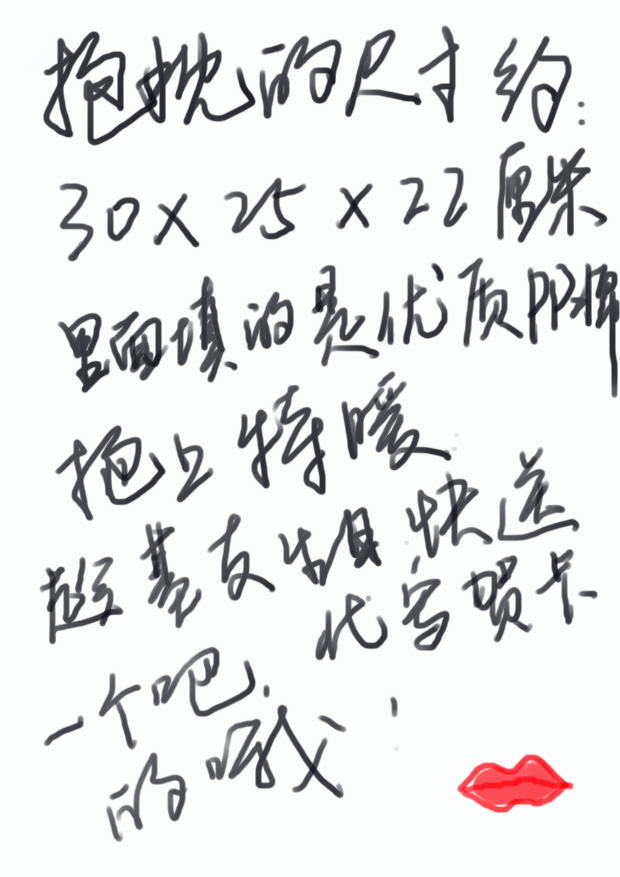 抱枕的尺寸约:
30×25×22厘米
里面填的是优质PP棉
抱上特暖
趁基友生日,快送
一个吧,代写贺卡
的哦!